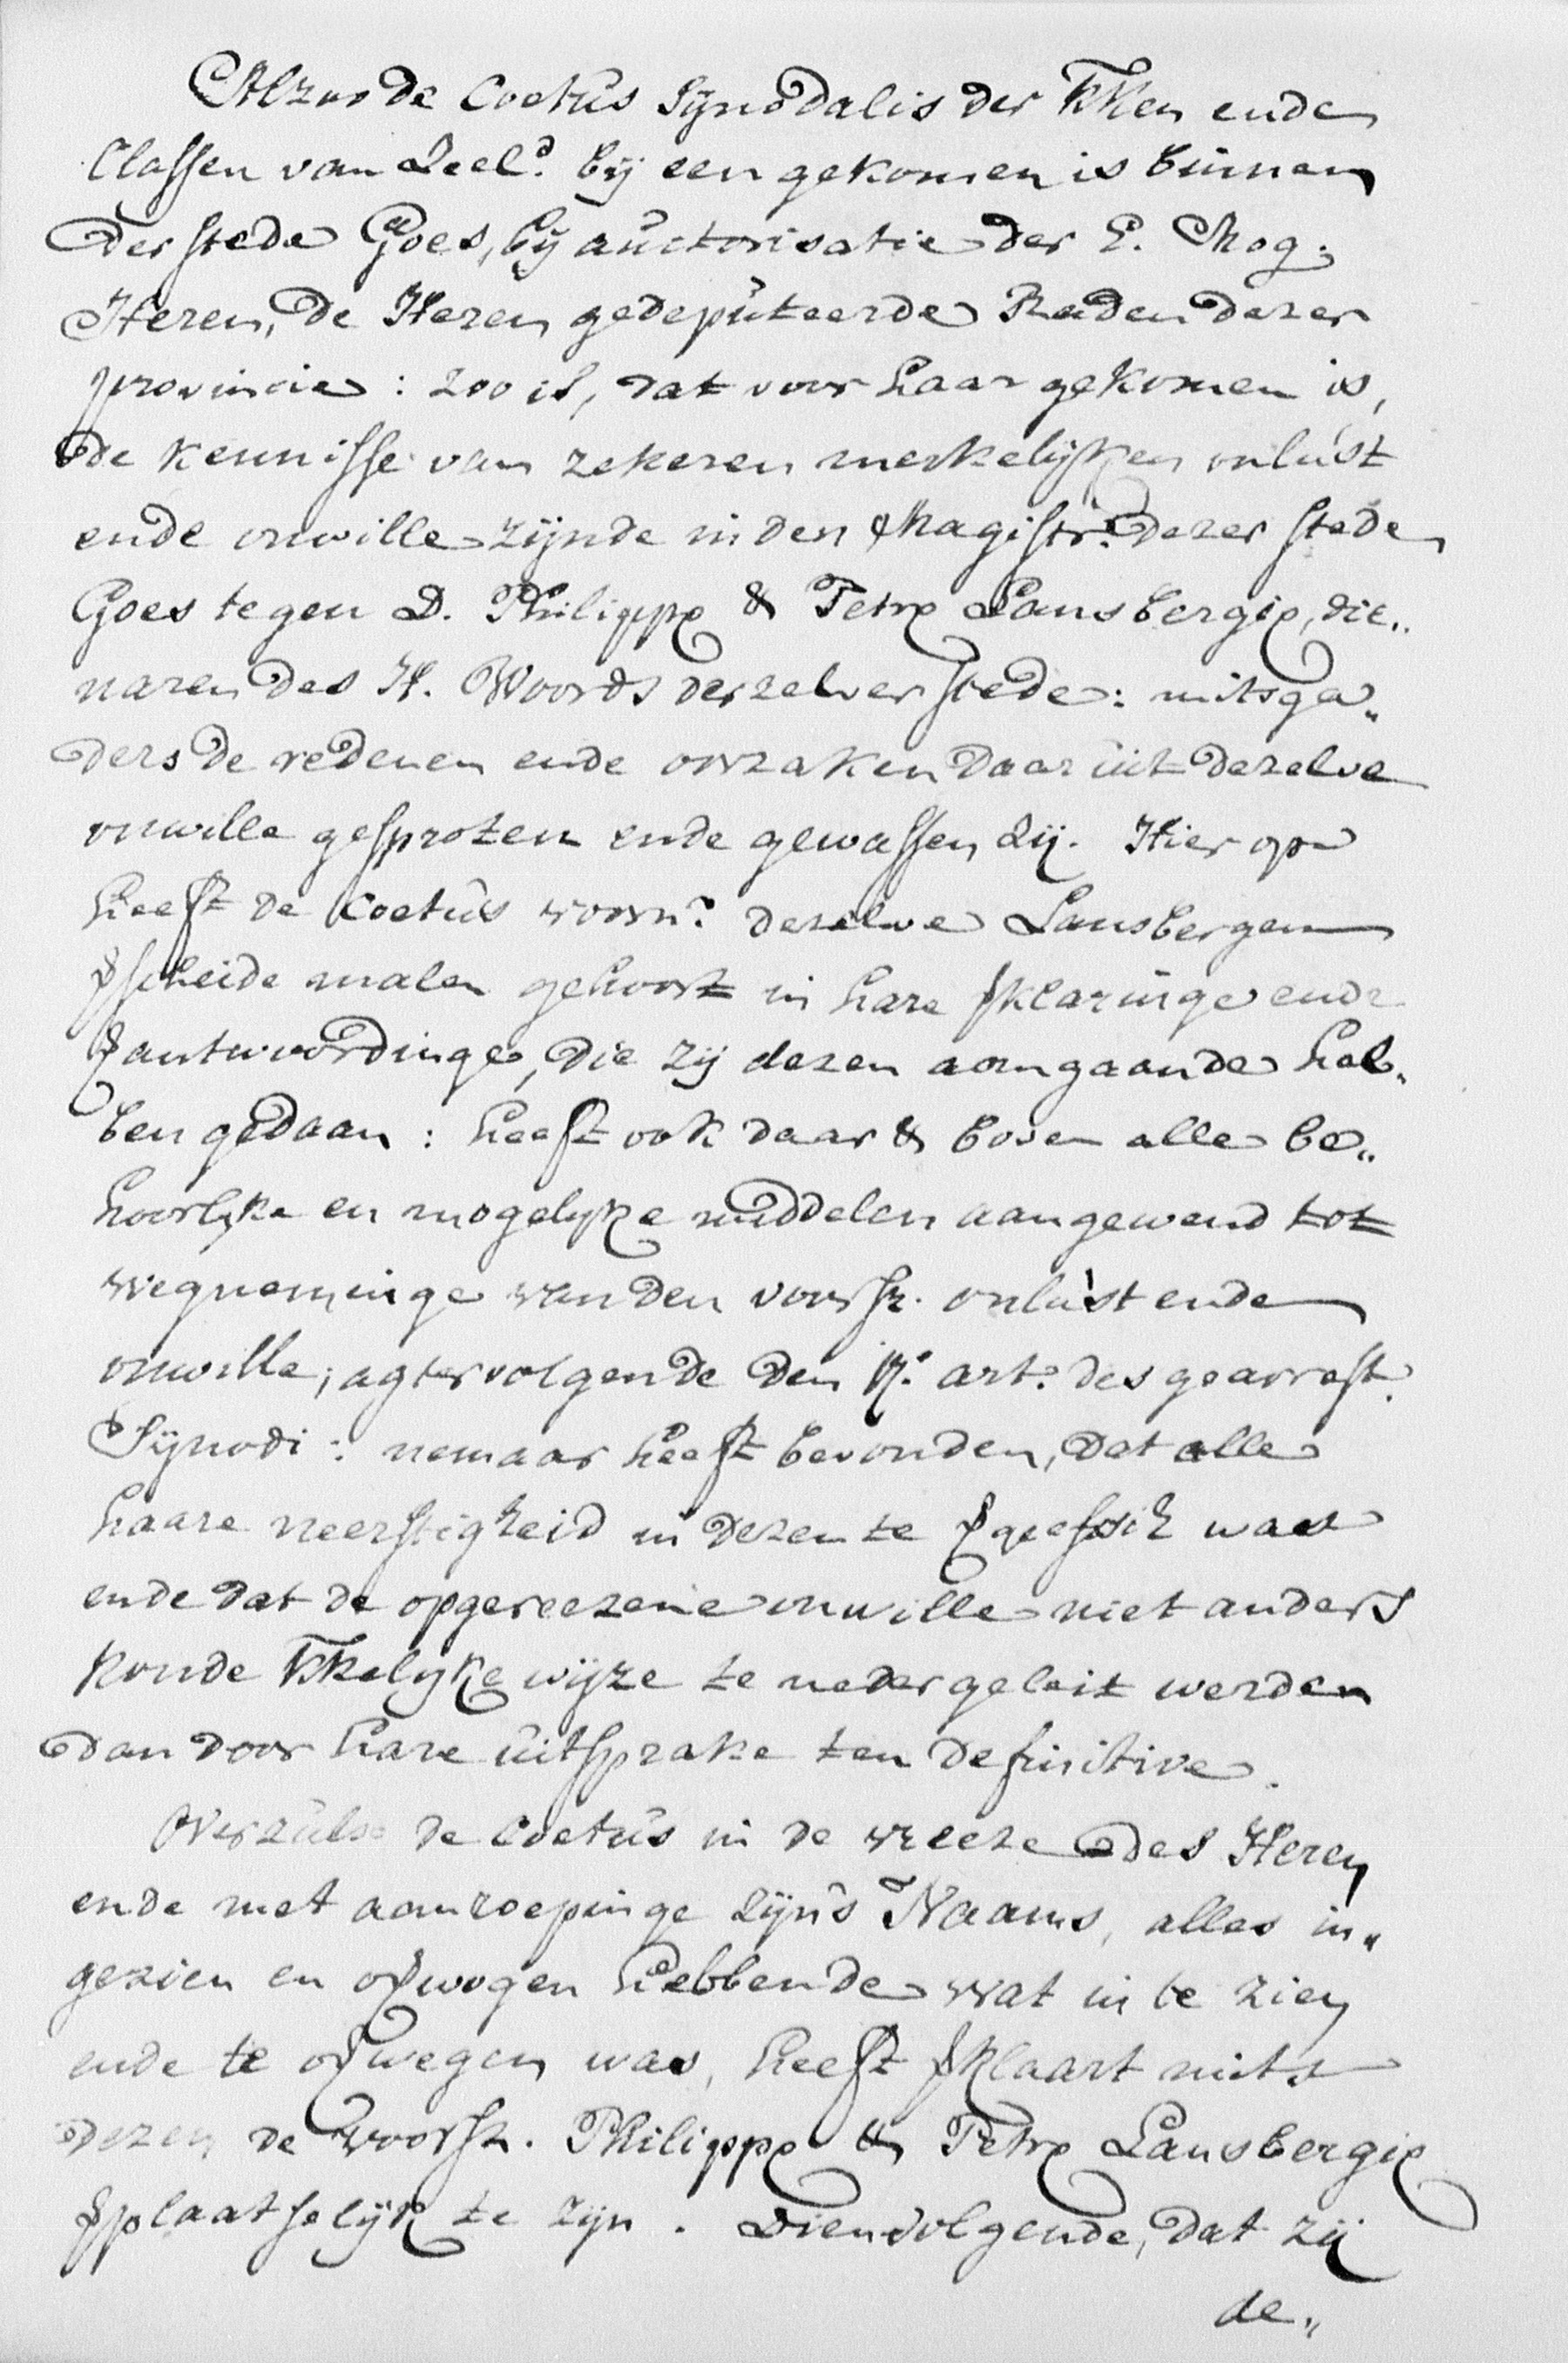 Alzoo de Coetus Synodalis der KKen ende
Classen van Zeel.d bij een gekomen is binnen
der stede Goes, bij auctorisatie der E. Mog:
Heren, de Heren gedeputeerde Raden dezer
provincie: zoo ist, dat voor haar gekomen is,
de kennisse van zekeren merkelijken onlust
ende onwille zijnde in den Magistr.t dezer stede
Goes tegen D. Philippū & Petrū Lansbergiū, die„
naren des H. Woords derzelver stede: mitsga„
ders de redenen ende oorzaken daar uit dezelve
onwille gesproten ende gewassen zij. Hier op
heeft de Coetus voorn.t dezelve Lansbergen
v̄scheide malen gehoort in hare v̄klaringe ende
v̄antwoordinge, die zij dezen aangaande heb„
ben gedaan: heeft ook daar en boven alle be„
hoorlyke en mogelyke middelen aangewend tot
wegneminge van den voorsz. onlust ende
onwille; agtervolgende den 17.e art. des gearrest.
Synodi: nemaar heeft bevonden, dat alle
haare neerstigheid in dezen te v̄geefsch was
ende dat de opgereezene onwille niet anders
konde KKelyke wijze te nedergeleit werden
dan door hare uitsprake ten definitive.
Overzulx de Coetus in de vreeze des Heren
ende met aanroepinge Zijns Naams, alles in„
gezien en ov̄wogen hebbende wat in te zien
ende te ov̄wegen was, heeft v̄klaart mits
dezen de voorsz. Philippū en Petrū Lansbergiū
v̄plaatselijk te zijn. Dienvolgende, dat zij
de„